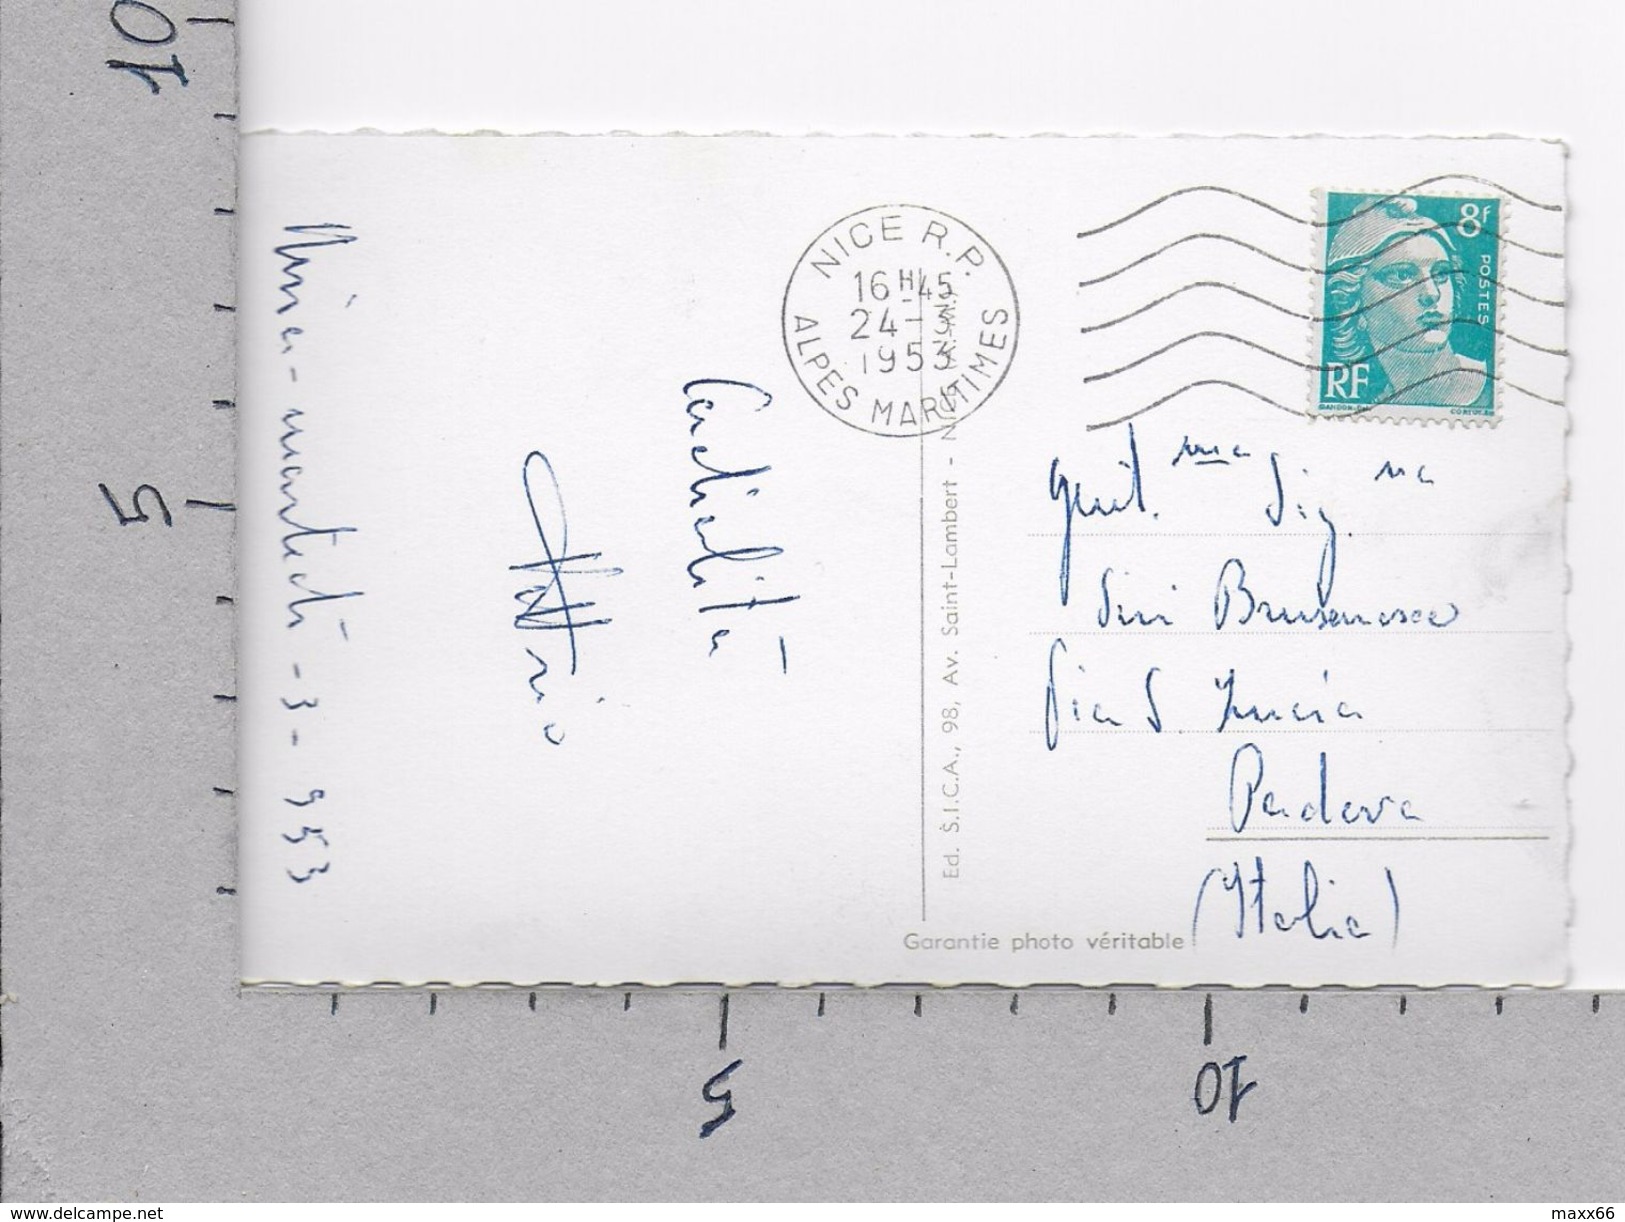 10
5
5
10
Nizza - martedì - 3 - 953
Cordialità
NICE R.P.
16 H 45
24 - 3
1953
ALPES MARITIMES
8f
POSTES
RF
GANDON-DEL.
CORTOT-SC.
Gent.ma Sig.na
Via S Lucia
Padova
(Italia)
Ed. S.I.C.A., 98, Av. Saint-Lambert - NICE
Garantie photo véritable
www.delcampe.net
maxx66